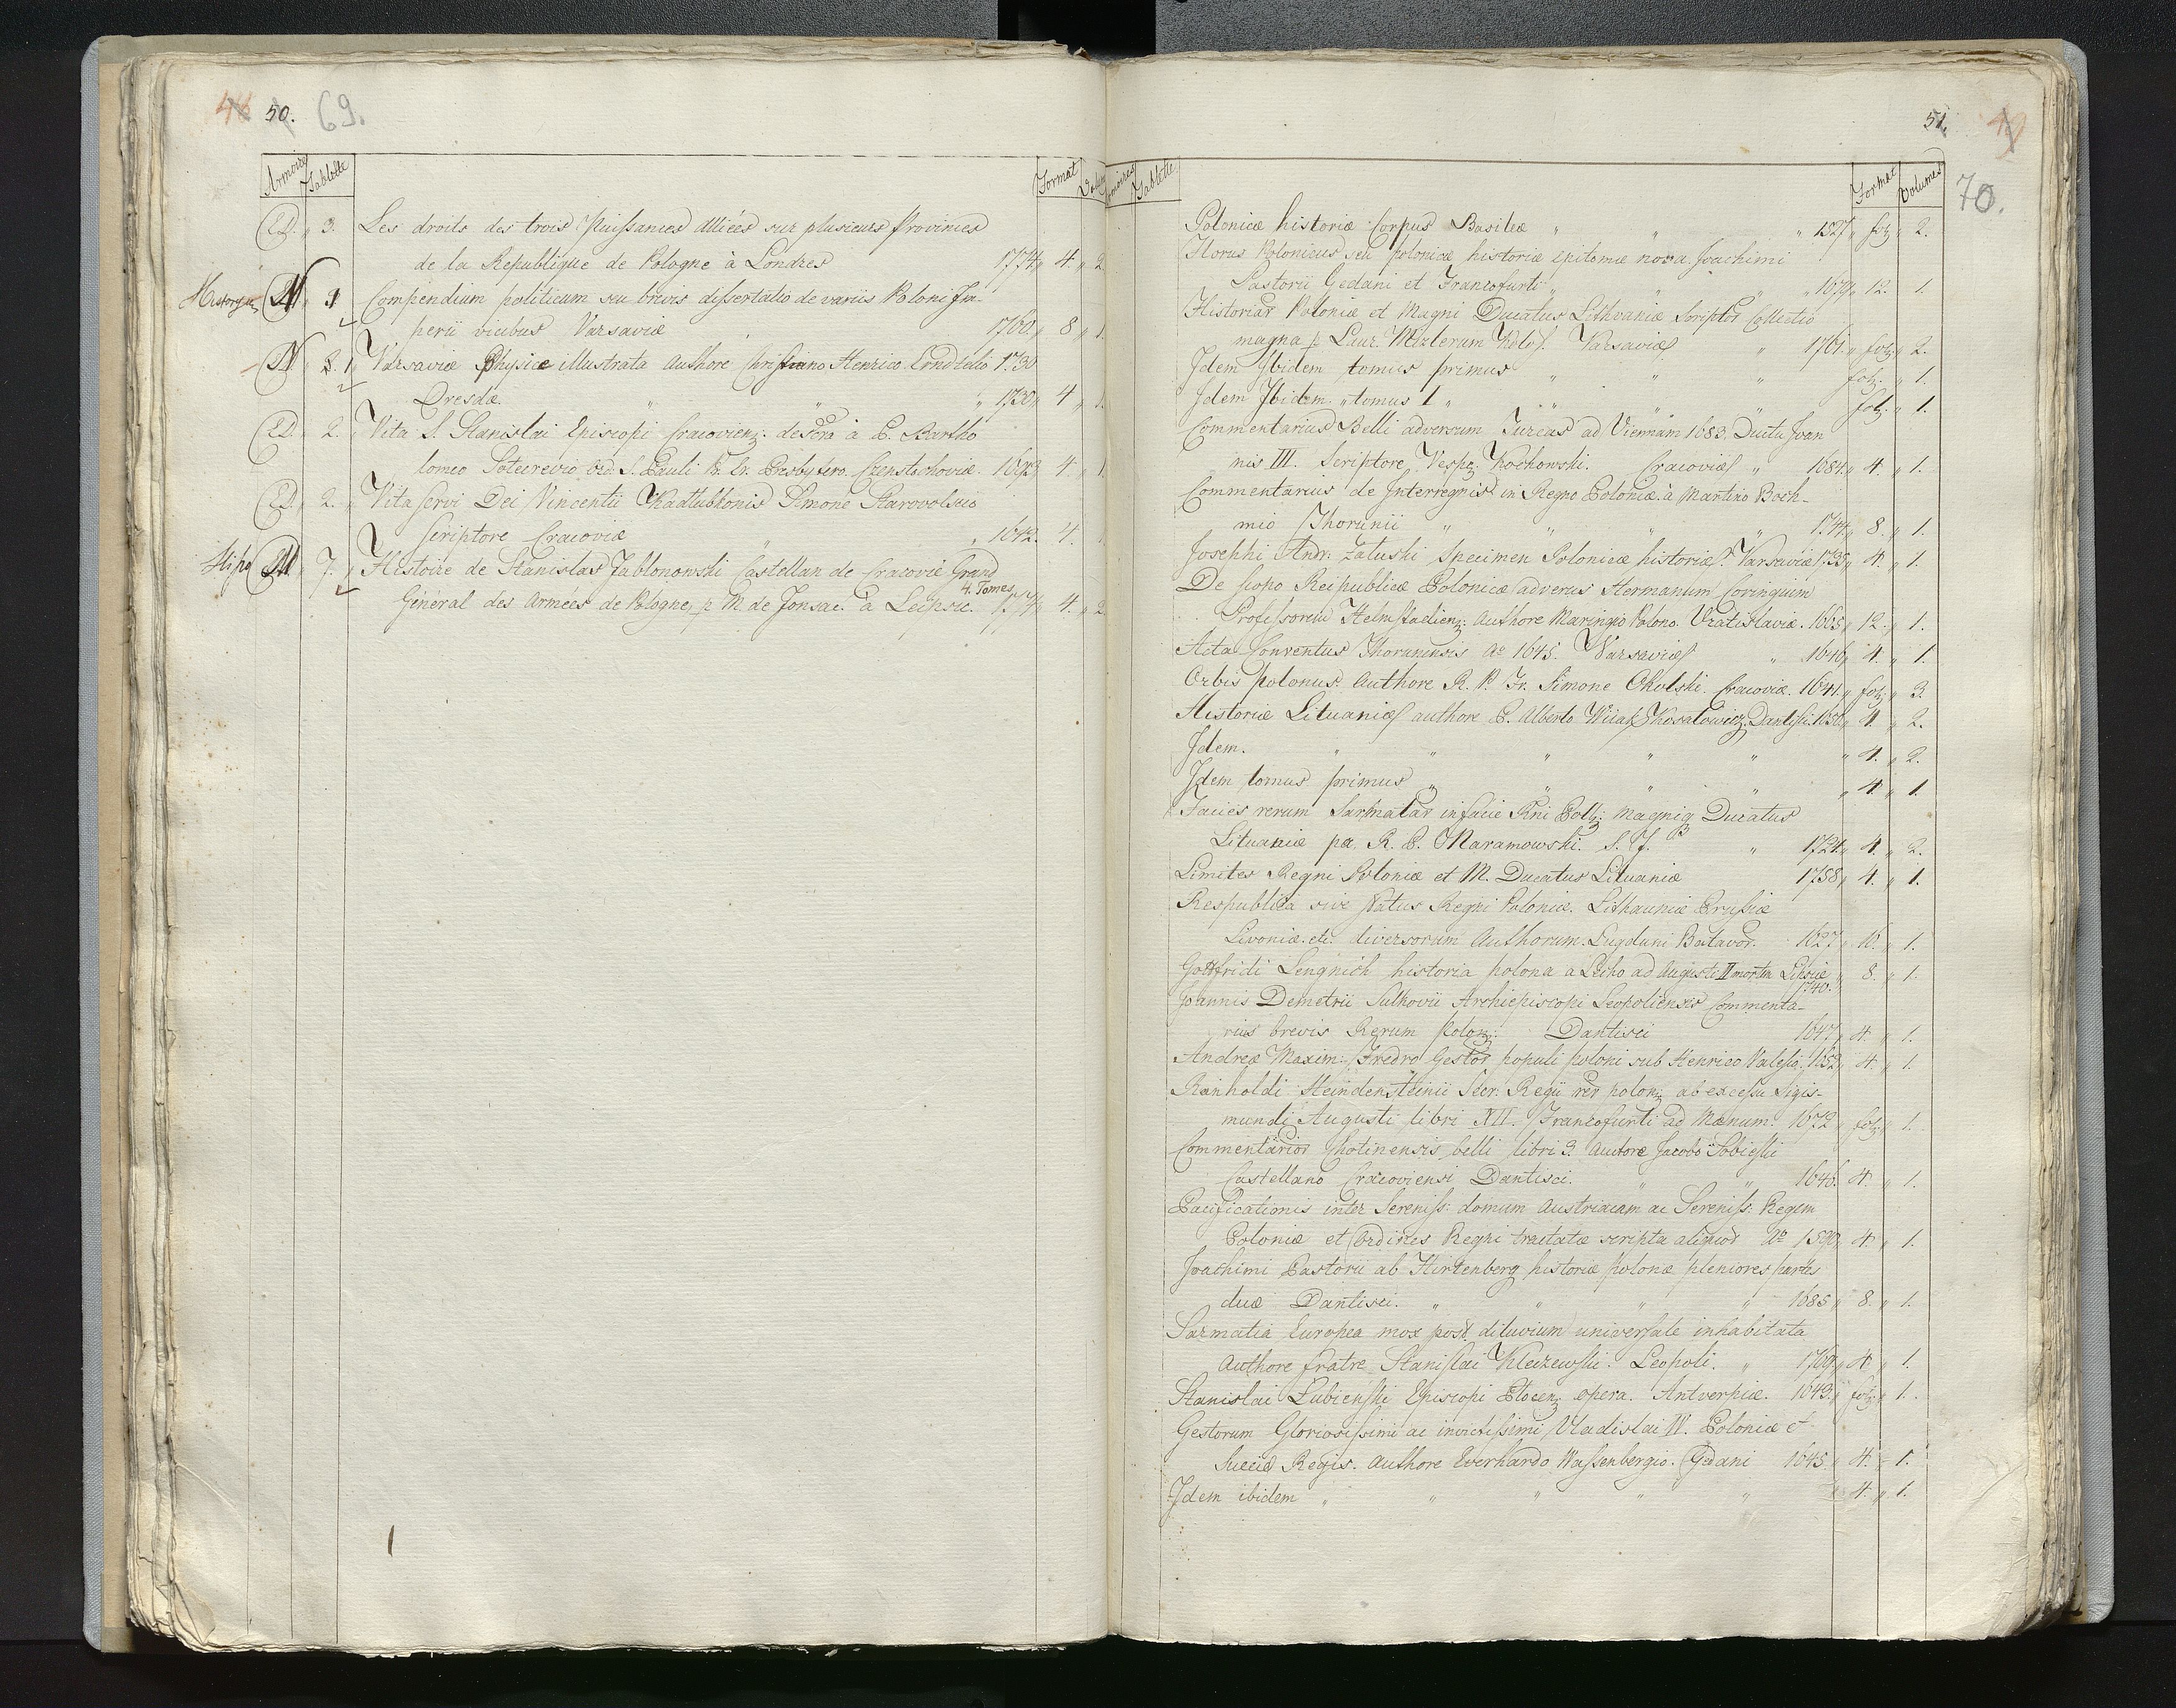 50. 69.
Armoire Tablette Format
Ed. " 3. Les droits des trois Puissances Alliées sur plusieurs Provinces
de la Republique de Pologne à Londres 1774 " 4. " 2
N " 9 Compendium politicum seu brevis dissertatio de variis Poloni Im-
perii vicibus Varsaviæ 1760. " 8 " 1.
N " 8. 1 Varsaviæ Physice illustrata Authore Christiano Henrico Erndtelio 1730
Dresdæ. " " " 1730 " 4 " 1.
Ed. " 2. " Vita S. Stanislai Episcopi Cracovienz. à P. Bartho
lomeo Ord. S. Pauli Pr. Er. Presbytero. Czenstochoviæ. 4 " 1
Ed. " 2. " Vita servi Dei Vincentii Kadlubkonis Simone Starovolscio
Scriptore Cracoviæ " " 1642. 4.
7. Histoire de Stanislas Jablonowski Castellan de Cracovie Grand
4. Tomes
Général des Armées de Pologne, p. M. de Jonsac. à Leipsic. 1774 " 4. " 2
51. 49
70.
Armoires Tablette Format Volumes
Polonicæ historiæ Corpus Basileæ " " " 1527 " fol. " 2.
Florus Polonicus seu polonicæ historiæ Epitome nova Joachimi
Pastorii Gedani et Francofurti " " " 1679 " 12. 1.
Historiar Poloniæ et Magni Ducatus Lithvaniæ Scriptor Collectio
magna p. Laur. Mizlerum Kolof. Varsaviæ " 1761. " fol. " 2.
Idem Ibidem tomus primus " " " fol. " 1.
Idem Ibidem. " tomus 1 " " " " fol. " 1.
Commentarius Belli adversum Turcas ad Viennam 1683. Ductu Joan
nis III. Scriptore Vesp. Kochowski. Cracoviæ " 1684. " 4. " 1.
Commentarius de Interregnis in Regno Poloniæ à Martino Boeh-
mio Thorunii " " " 1744. " 8. " 1.
Josephi Andr: Zaluski Specimen Polonicæ historiæ. Varsaviæ 1735 " 4. " 1.
De scopo Reipublicæ Polonicæ adverus Hermanum Coringium
Professorem Helmstadienz: Authore Maringio Polono. Vratislaviæ. 1665 " 12. " 1.
Acta Conventus Thoruninsis Ao 1645. Varsaviæ " 1646 " 4. " 1.
Orbis polonus. Authore R. P. Fr. Simone Okolski. Cracoviæ. 1641. " fol. " 3.
Historiæ Lituaniæ authore P. Alberto Wiiak Koialowicz. Dantisci. 1650. " 4. " 2.
Idem. " " " " " " 4. " 2.
Idem tomus primus " " " " " 4. " 1.
Facies rerum Sarmatar in facie Rni Pol: Magniq Ducatus
Lituaniæ pa. R. P. Naramowski. S. J. " 1724. " 4. " 2.
Limites Regni Poloniæ et M. Ducatus Lituaniæ 1758 " 4. " 1.
Respublica sive Status Regni Poloniæ. Lithauniæ Prusiæ
Livoniæ. etc. diversorum Authorum. Lugduni Batavor. 1627 " 16. " 1.
Gottfridi Lengnich historia polona a Lecho ad Augusti II mortem Lipsiæ " 8. " 1.
1740.
Joannis Demetrii Sulkovii Archiepiscopi Leopoliensis Commenta-
rius brevis Rerum polon: Dantisci 1647 " 4. " 1.
Andreæ Maxim: Fredro Gestor populi poloni sub Henrico Valesio. 1652 " 4. " 1.
Rainholdi Heindensteinii Secr. Regii rer polon: ab excessu Sigis-
mundi Augusti libri XII. Francofurti ad Mænum. 1672 " fol. " 1.
Commentarior Chotinensis belli libri 3. Auctore Jacobo Sobieski
Castellano Cracoviensi Dantisci. " " 1646. 4. " 1.
Pacificationis inter Sereniss: domum Austriacam ac Sereniss: Regem
Poloniæ et Ordines Regni tractatæ scripta aliquod Ao 1590 " 4. " 1.
Joachimi Pastorii ab Hirtenberg historiæ polonæ pleniores partes
duæ Dantisci. " " " " 1685 " 8. " 1.
Sarmatia Europea mox post diluvium universale inhabitata
Authore fratre Stanislai Kleczewski. Leopoli. " 1769. " 4 " 1.
Stanislai Lubienski Episcopi Plocenz opera. Antverpiæ. 1643. " fol. " 1.
Gestorum Gloriosissimi ac invictissimi Vladislai IV. Poloniæ et
Sueciæ Regis. Authore Everhardo Wassenbergio. Gedani 1643. " 4. " 1.
Idem ibidem " " " " " 4. " 1.